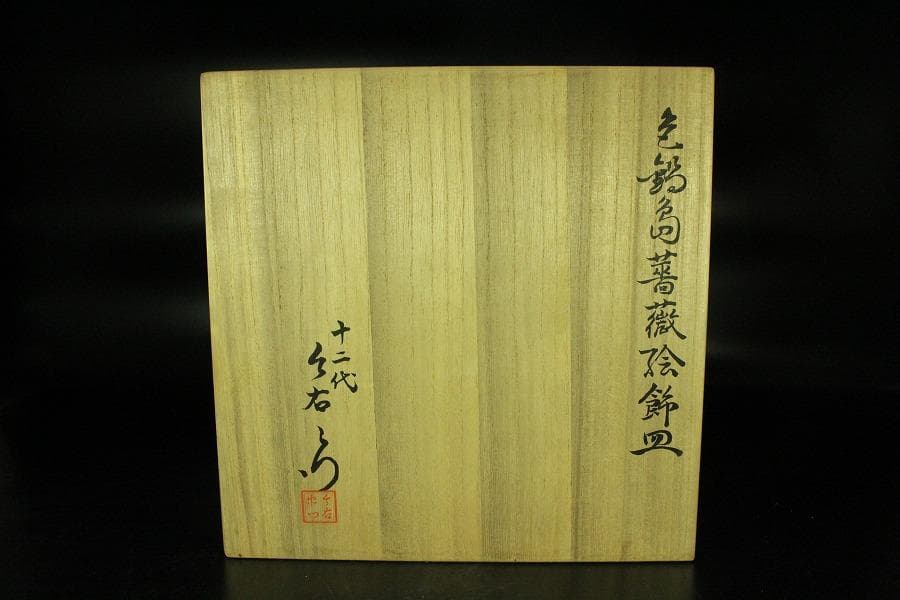 色鍋島薔薇絵飾皿
十二代
今右衛門
今右
衛門